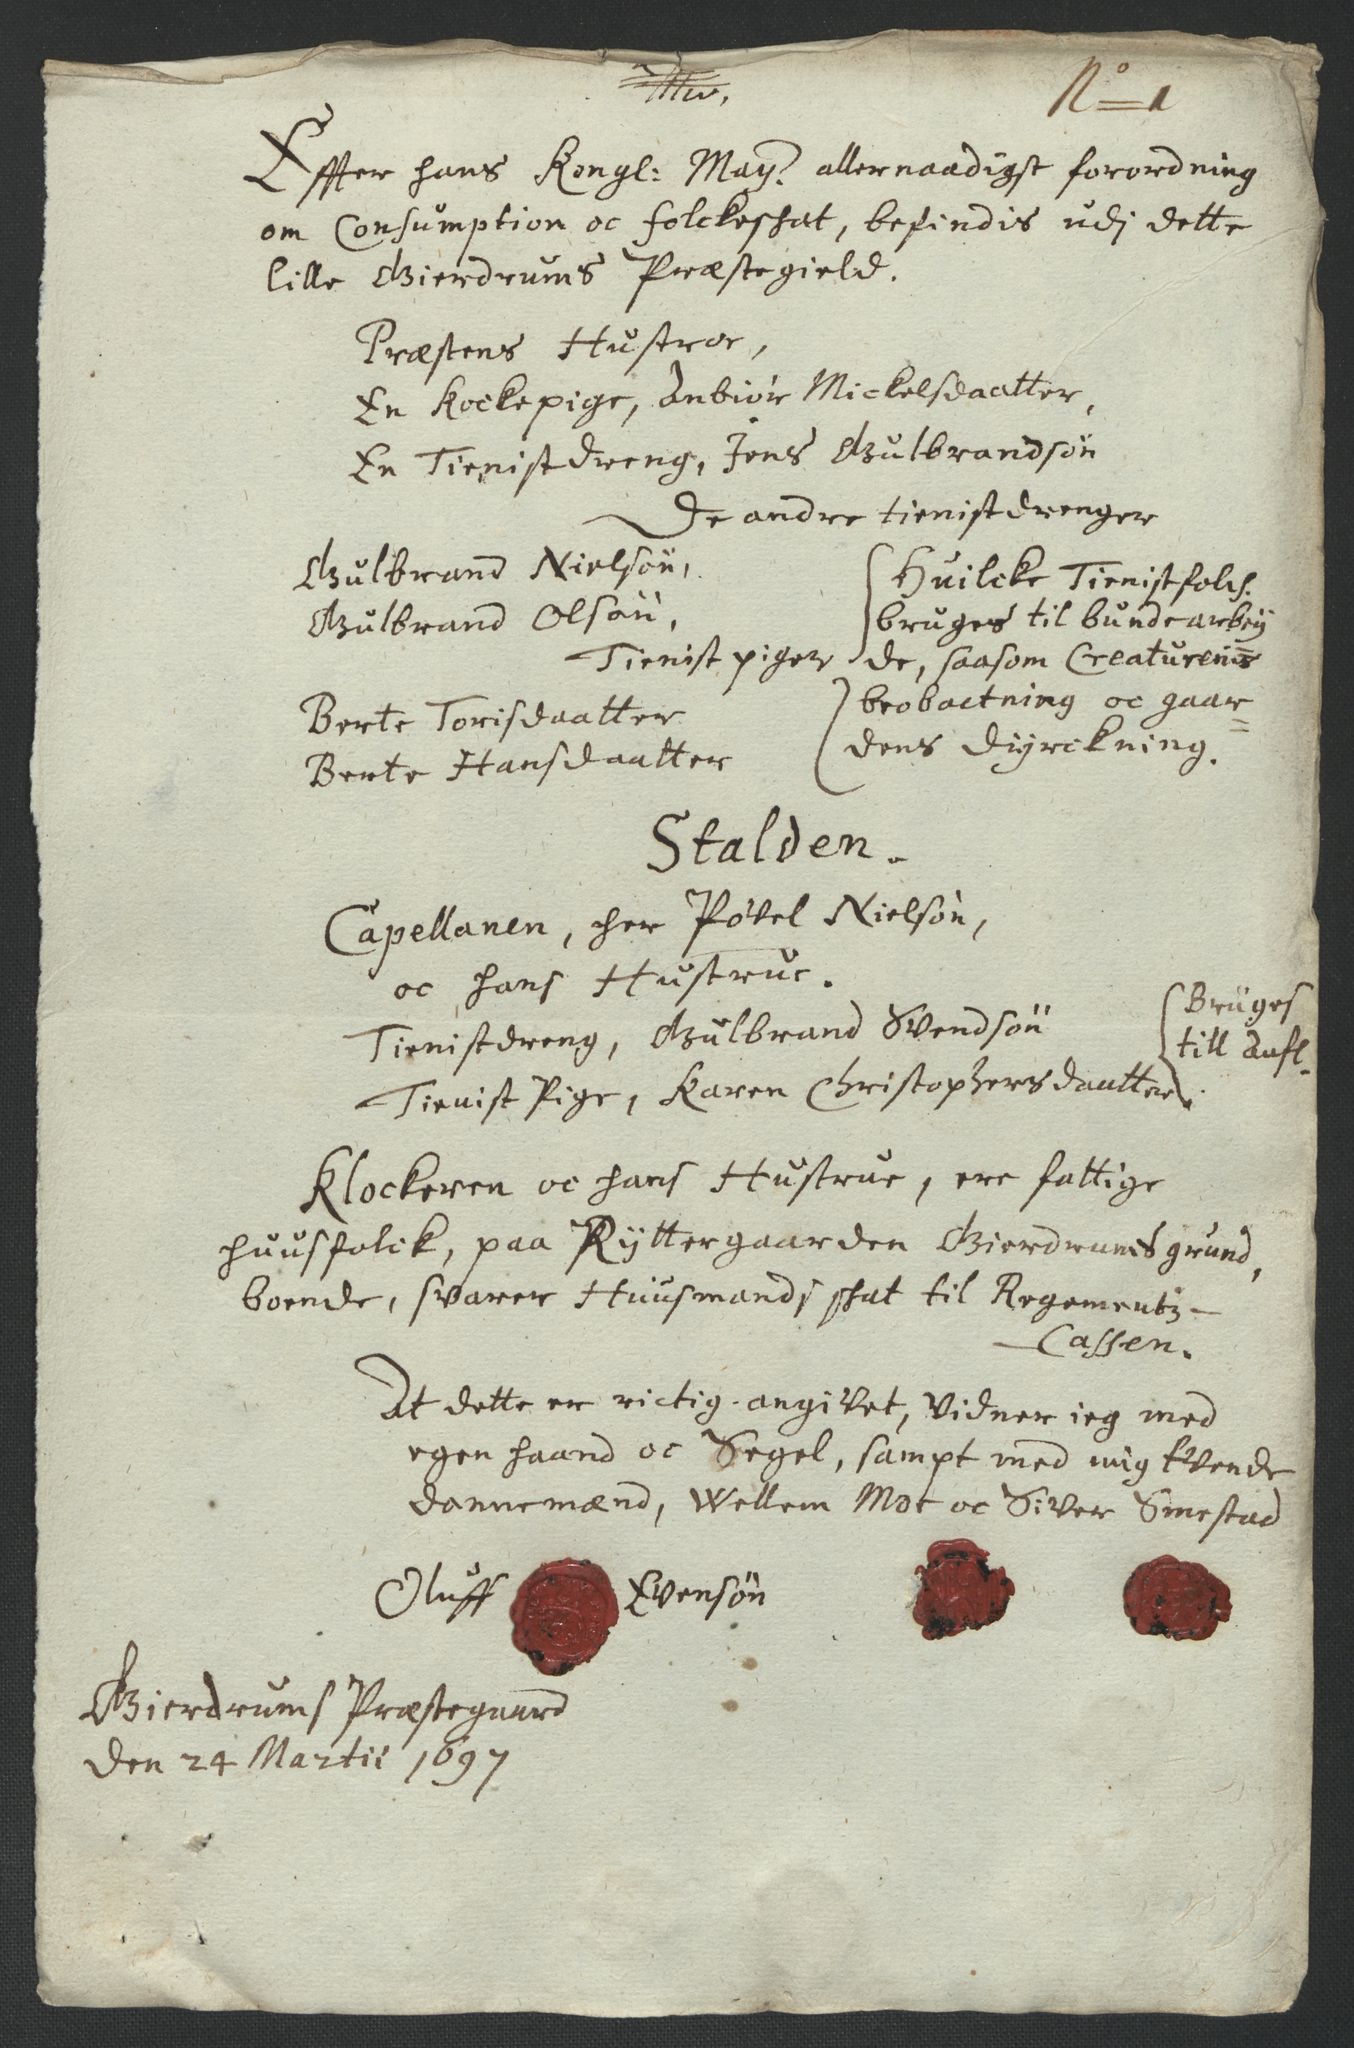 No 1
Effter hans Kongl: May: allernaadigst forordning
om Consumption oc folckeskat, befindis udj dette
lille Gierdrums Præstegield.
Præstens Hustroe,
En Kockepige, Anbiør Mickelsdaatter,
En Tienistdreng, Jens Gulbrandsøn
De andre tienistdrenger
Gulbrand Nielsøn,
Gulbrand Olsøn,
Tienist piger
Berte Torisdaatter
Berte Hansdaatter
Huilcke Tienistfolch
bruges til bundearbey
de, saasom Creaturenis
beobactning oc gaar=
dens dyrckning.
Stalden.
Capellanen, her Povel Nielsøn,
oc hans Hustrue.
Tienistdreng, Gulbrand Svendsøn
Tienist Pige, Karen Christophersdaatter.
Bruges
till aufl.
Klockeren oc hans Hustrue, ere fattige
huusfolck, paa Ryttergaarden Gierdrums grund,
boende, svarer Huusmands skat til Regementz-
Cassen.
At dette er rictig angivet, vidner ieg med
egen haand oc Segel, sampt med mig tvende
dannemænd, Wellem Moe oc Siver Smestad
Oluff Evensøn
Gierdrums Præstegaard
den 24 Martii 1697